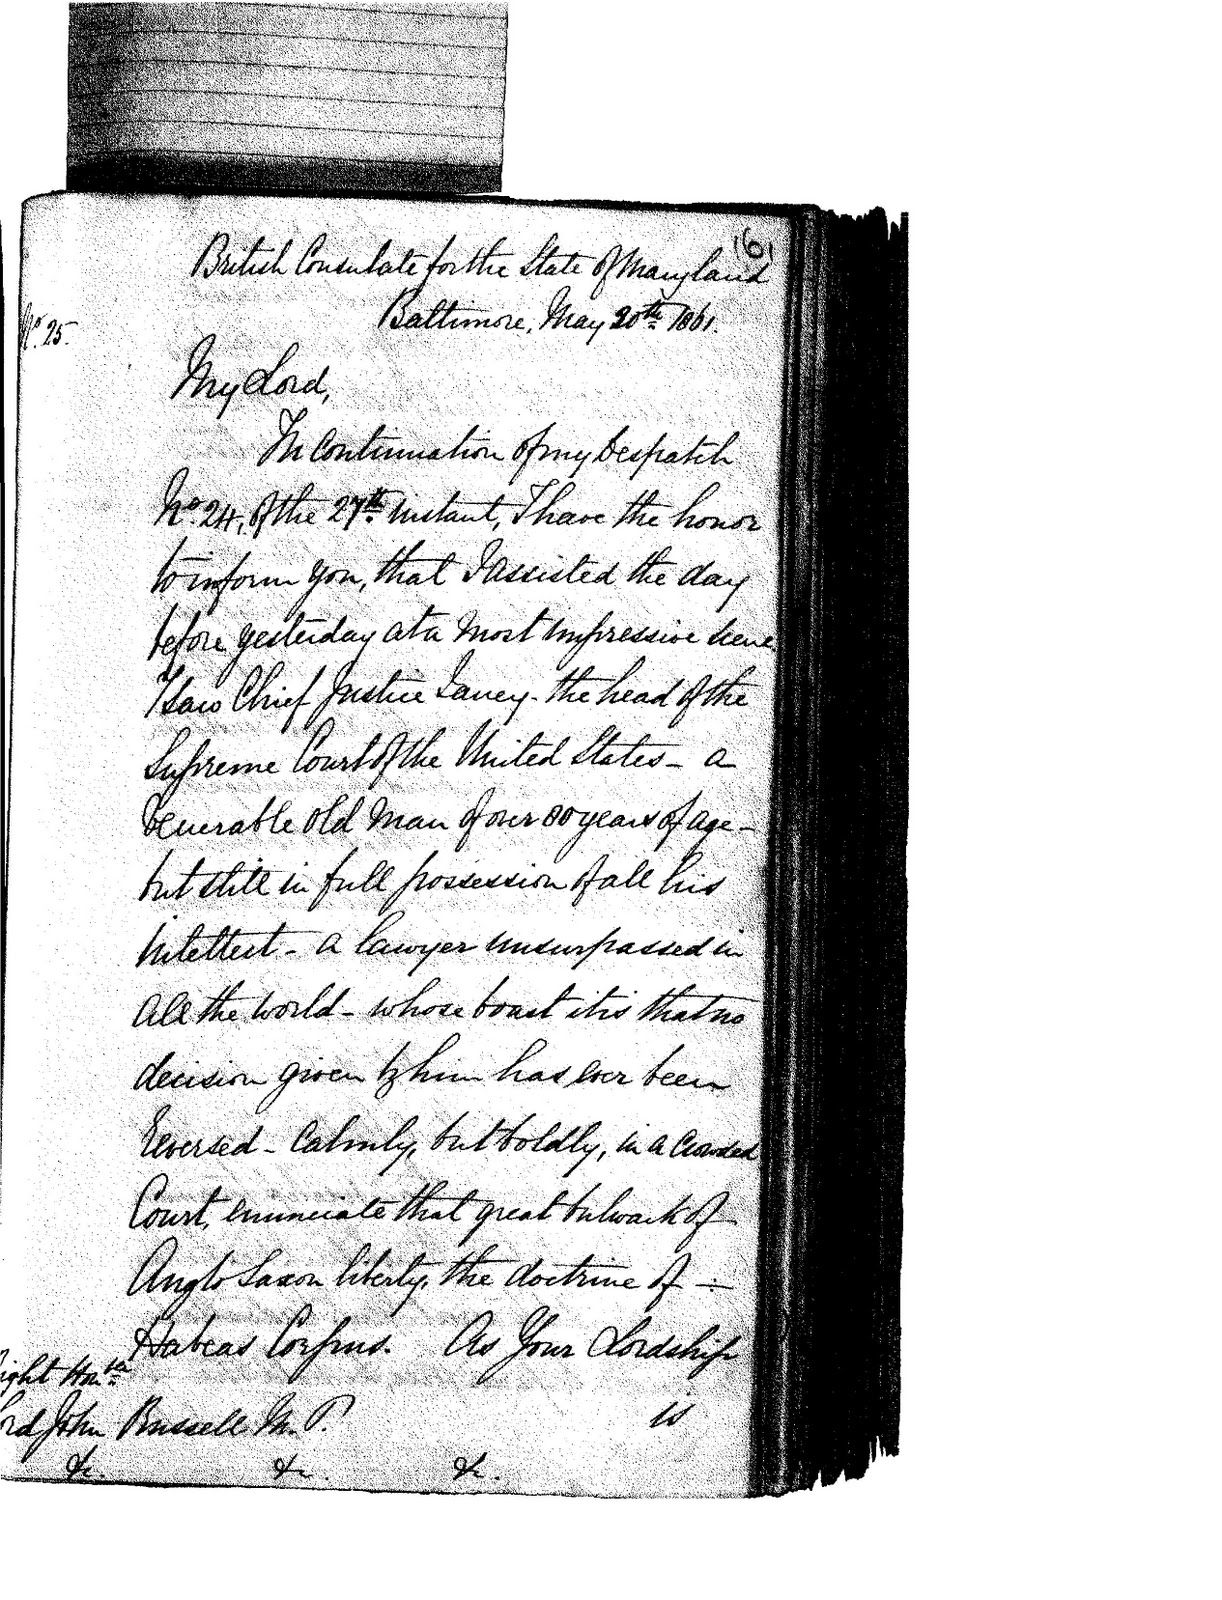 161
British Consulate for the State of Maryland
Baltimore, May 30th 1861.
No. 25.
My Lord,
In Continuation of my Despatch
No. 24, of the 27th Instant, I have the honor
to inform you, that I assisted the day
before yesterday at a most impressive scene
I saw Chief Justice Taney - the head of the
Supreme Court of the United States - a
Venerable old Man of over 80 years of age -
but still in full possession of all his
Intellect - a lawyer unsurpassed in
all the world - whose boast it is that no
decision given by him has ever been
reversed - Calmly, but boldly, in a Crowded
Court, enunciate that great bulwark of
Anglo Saxon liberty, the doctrine of -
Habeas Corpus. As Your Lordship
is
Right Honble
Lord John Russell M.P.
&c. &c. &c.